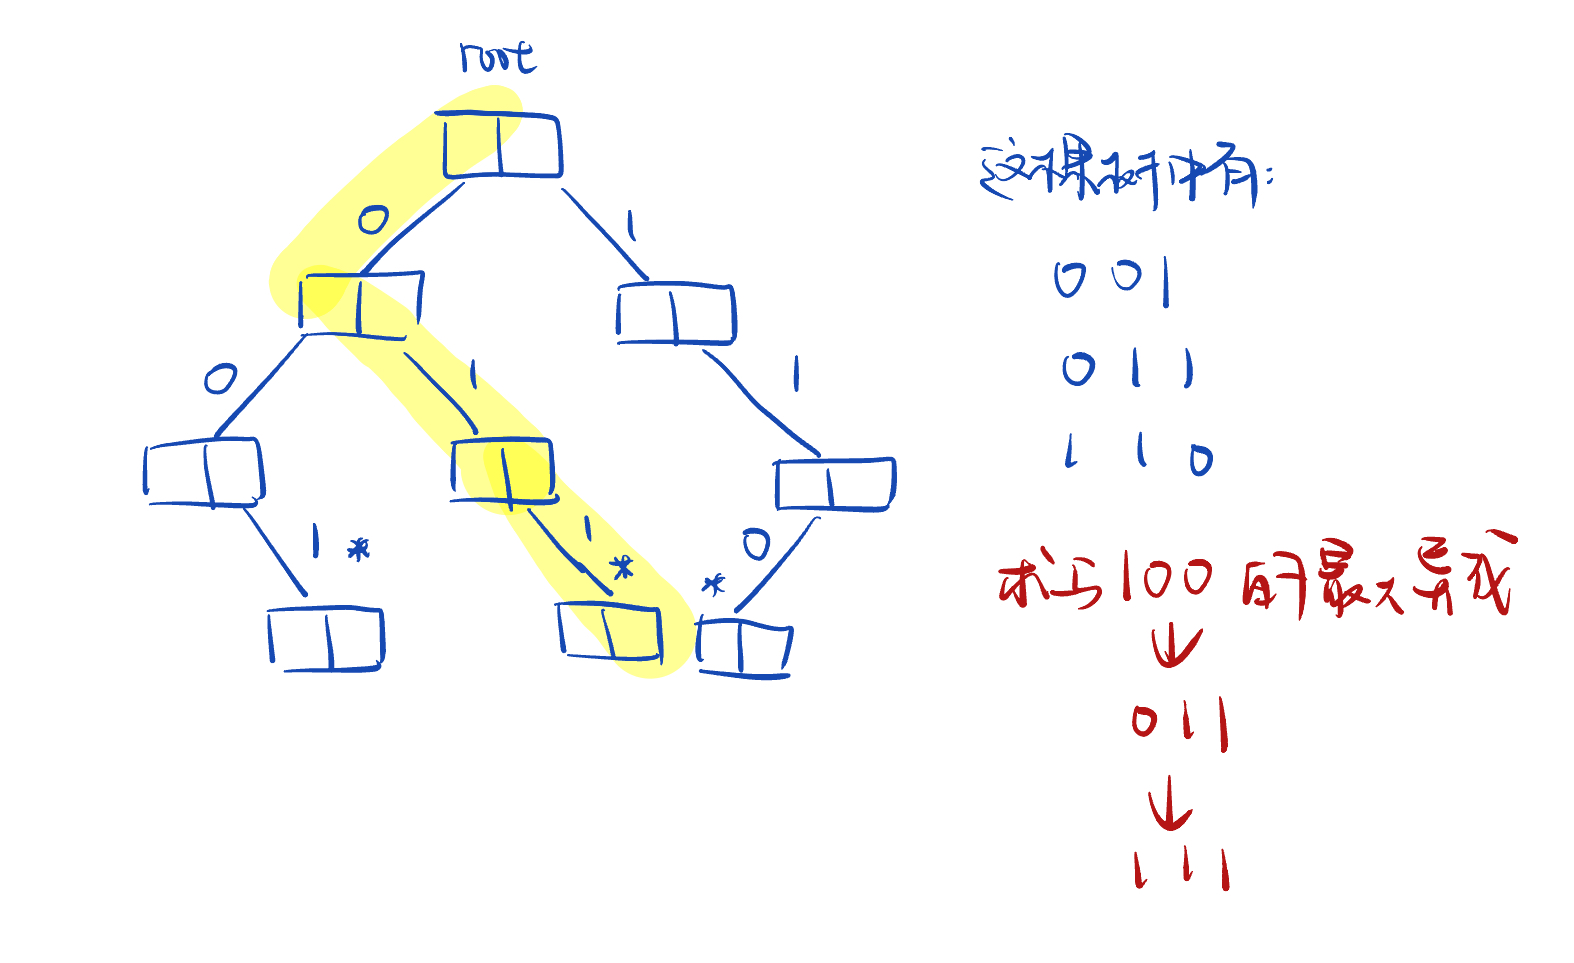 root
0
1
0
1
1
1 *
1 *
* 0
这棵树中有:
0 0 1
0 1 1
1 1 0
求与100的最大异或
0 1 1
1 1 1